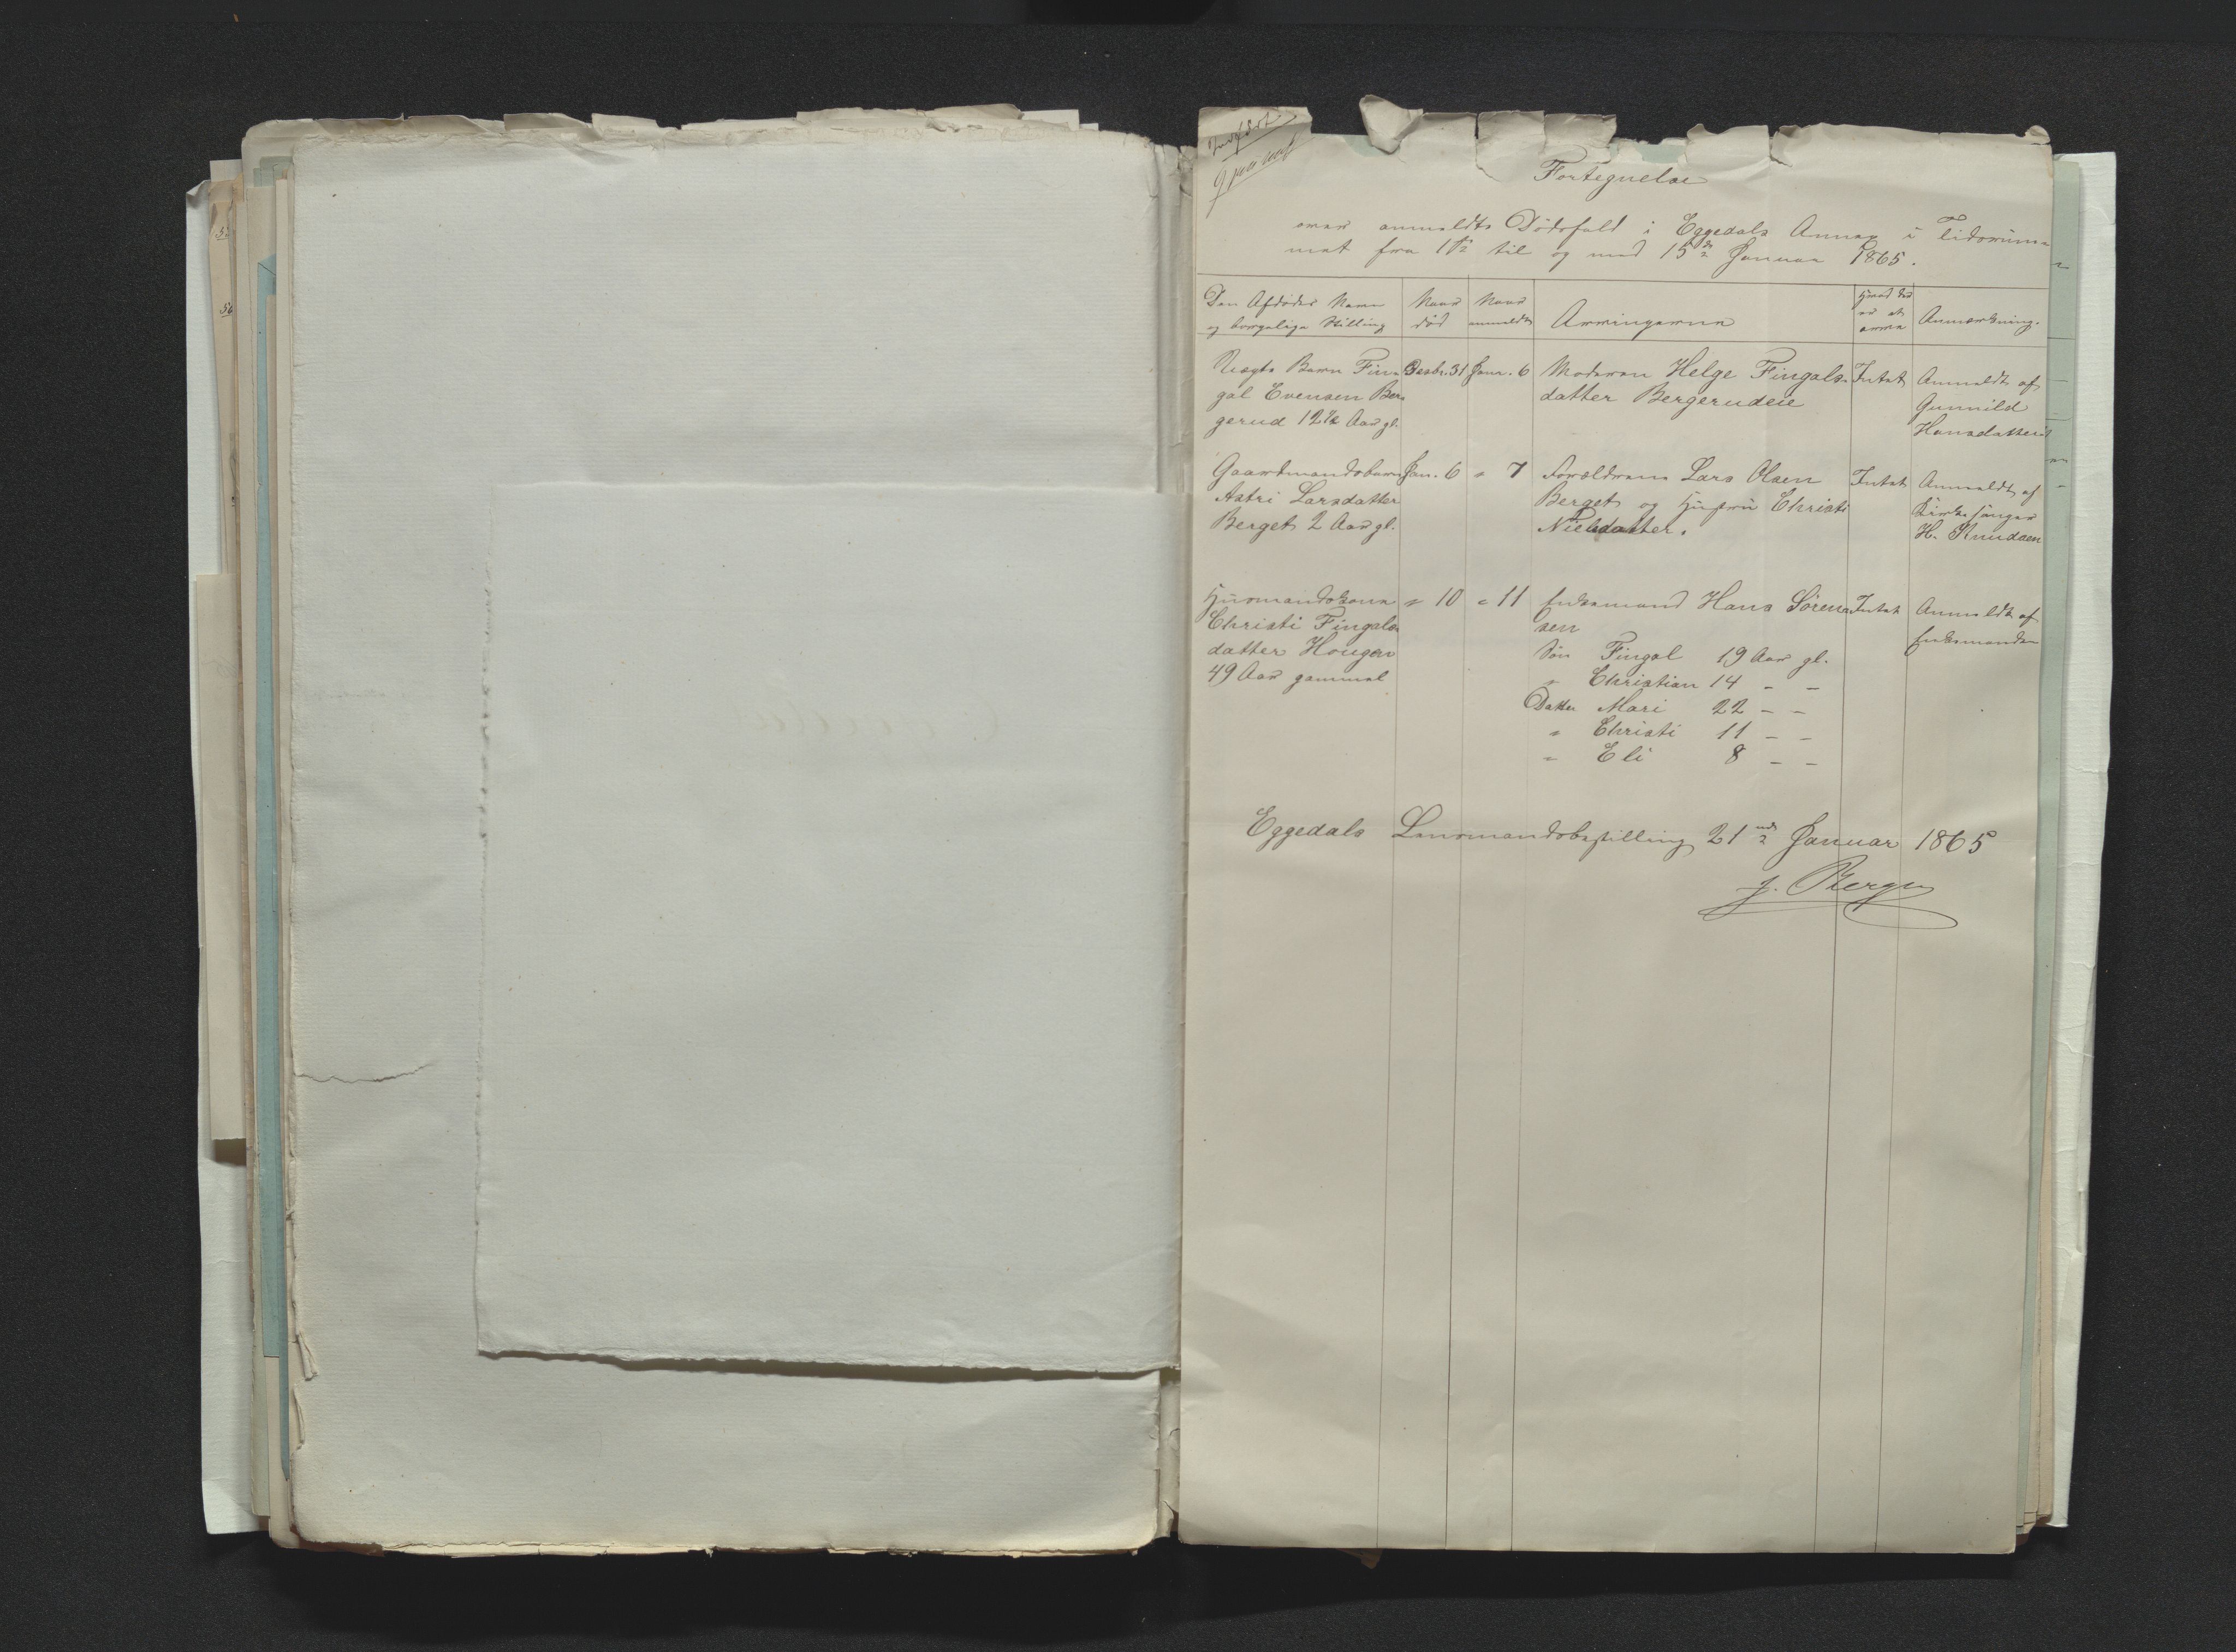 Indført
Fortegnelse
over anmeldte Dødsfald i Eggedals Annex i Tidsrum-
met fra 1ste til og med 15de Januar 1865.
Den Afdødes Navn
og borgerlige Stilling
Naar
død
Naar
anmeldt
Arvingerne
Hvad der
er at
arve
Anmærkning.
Uægte Barn Fin-
gal Evensen Ber-
gerud 12½ Aar gl.
Decbr. 31
Janr. 6
Moderen Helge Fingals-
datter Bergerudeie
Intet
Anmeldt af
Gunnild
Hansdatter
Gaardmandsbarn
Astri Larsdatter
Berget 2 Aar gl.
Jan. 6
" 7
Forældrene Lars Olsen
Berget og Hustru Christi
Nielsdatter.
Intet
Anmeldt af
Kirkesanger
H. Knudsen
Husmandskone
Christi Fingals-
datter Hougen
49 Aar gammel
" 10
" 11
Enkemand Hans Sören-
sen
Søn Fingal 19 Aar gl.
" Christian 14 – –
Datter Mari 22 – –
" Christi 11 – –
" Eli 8 – –
Intet
Anmeldt af
Enkemanden
Eggedals Lensmandsbestilling 21de Januar 1865
J. Berge